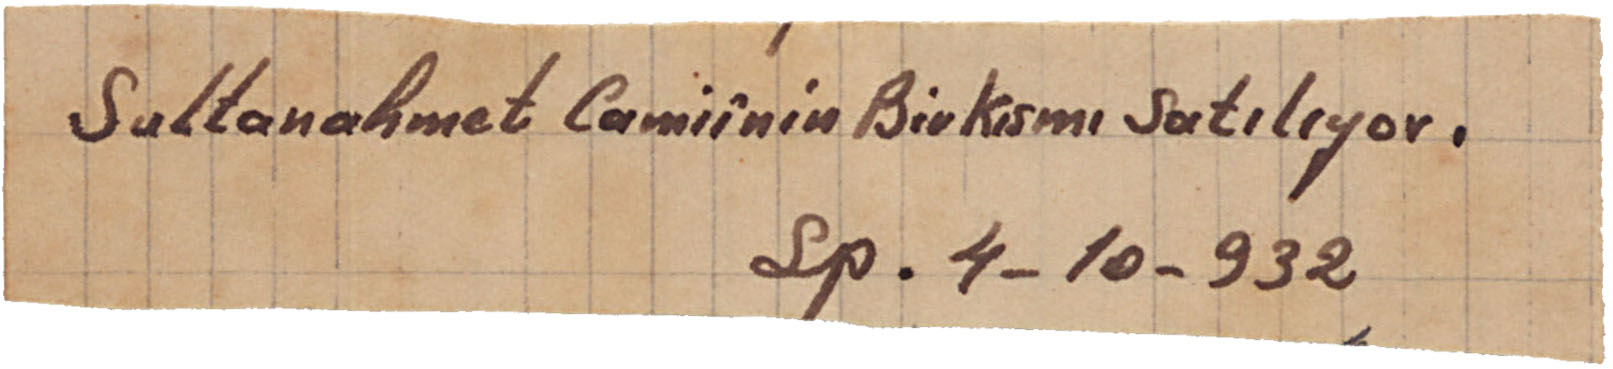 Sultanahmet Camiînin Bir Kısmı Satılıyor.
Sp. 4-10-932